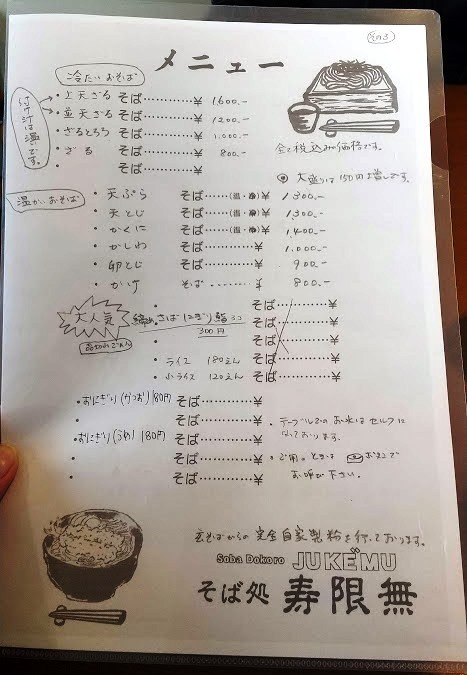 その3
メニュー
冷たいおそば
付け汁は温です。
・上天ざる そば…………¥ 1600.-
・並天ざる そば…………¥ 1200.-
・ざるとろろ そば…………¥ 1.000.-
・ざる そば…………¥ 800.-
・ そば…………¥
全て税込みの価格です。
◎ 大盛りは150円増しです。
温かいおそば
・天ぷら そば……(温・冷)¥ 1300.-
・天とじ そば……(温・冷)¥ 1300.-
・かくに そば……(温・冷)¥ 1,400.-
・かしわ そば…………¥ 1.000.-
・卵とじ そば…………¥ 900.-
・かけ そば…………¥ 800.-
大人気
品切れごめん
・ そば…………¥
締めさばにぎり鮨 3コ そば…………¥
300円
・ そば…………¥
・ライス 180えん そば…………¥
・小ライス 120えん そば…………¥
・おにぎり(かつお)180円 そば…………¥
・ そば…………¥
・テーブルでのお水はセルフになっております。
・おにぎり(うめ)180円 そば…………¥
・ そば…………¥
・ご用のときは
お呼び下さい。
・ そば…………¥
玄そばからの完全自家製粉を行っております。
Soba Dokoro JUKEMU
そば処 寿限無